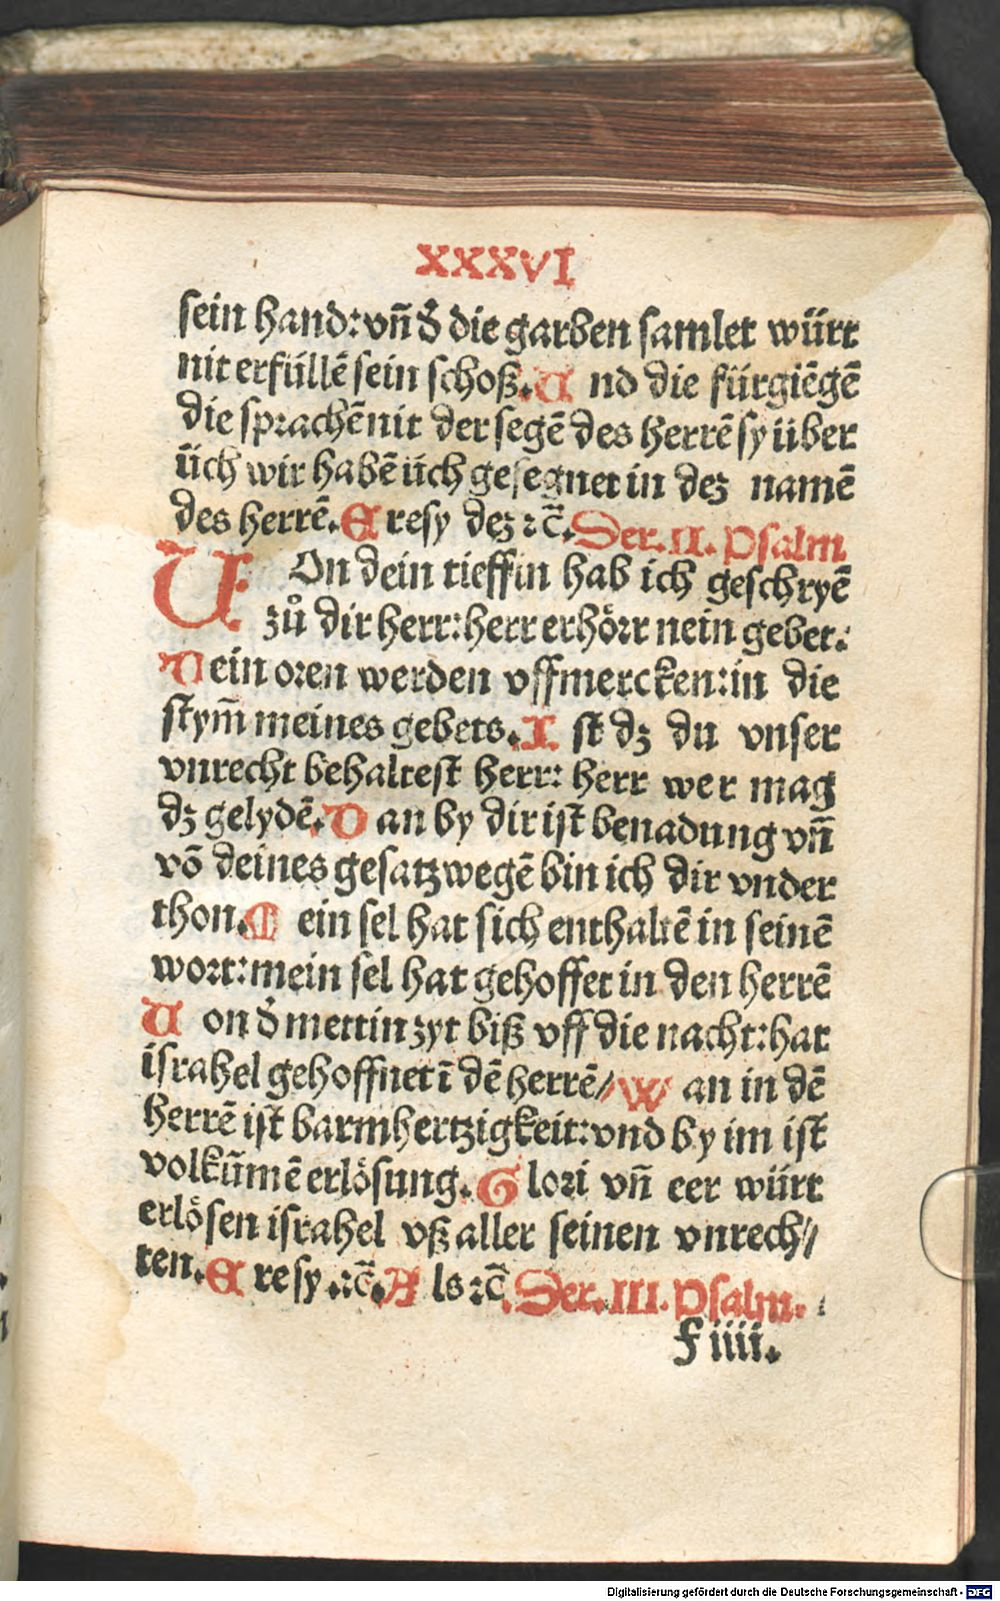 XXXVI
sein hand: vñ d̕ die garben samlet würt
nit erfüllē sein schoß. Und die fürgiēgē
die sprachē nit der segē des herrē sy über
üch wir habē üch gesegnet in dez namē
des herrē. Eresy dez ꝛc̄. Der. II. Psalm
UOn dein tieffin hab ich geschryē
zů dir herr: herr erhörr nein gebet:
Dein oren werden vffmercken: in die
stym̄ meines gebets. Ist dz du vnser
vnrecht behaltest herr: herr wer mag
dz gelydē. Dan by dir ist benadung vñ
vō deines gesatz wegē bin ich dir vnder
thon. Mein sel hat sich enthaltē in seinē
wort: mein sel hat gehoffet in den herrē
Uon d̕ mettin zyt biß vff die nacht: hat
israhel gehoffnet ī dē herrē // Wan in dē
herrē ist barmhertzigkeit: vnd by im ist
volkūmē erlösung. Glori vñ eer würt
erlösen israhel vß aller seinen vnrech//
ten. Eresy .ꝛc̄. Als ꝛc̄. Der. III. Psalm.
F iiii.
Digitalisierung gefördert durch die Deutsche Forschungsgemeinschaft - DFG